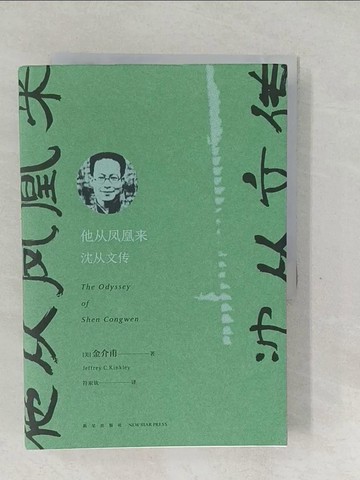 他从凤凰来
沈从文传
他从凤凰来
沈从文传
The Odyssey
of
Shen Congwen
[美]金介甫 著
Jeffrey C. Kinkley
符家钦 译
新星出版社 NEW STAR PRESS